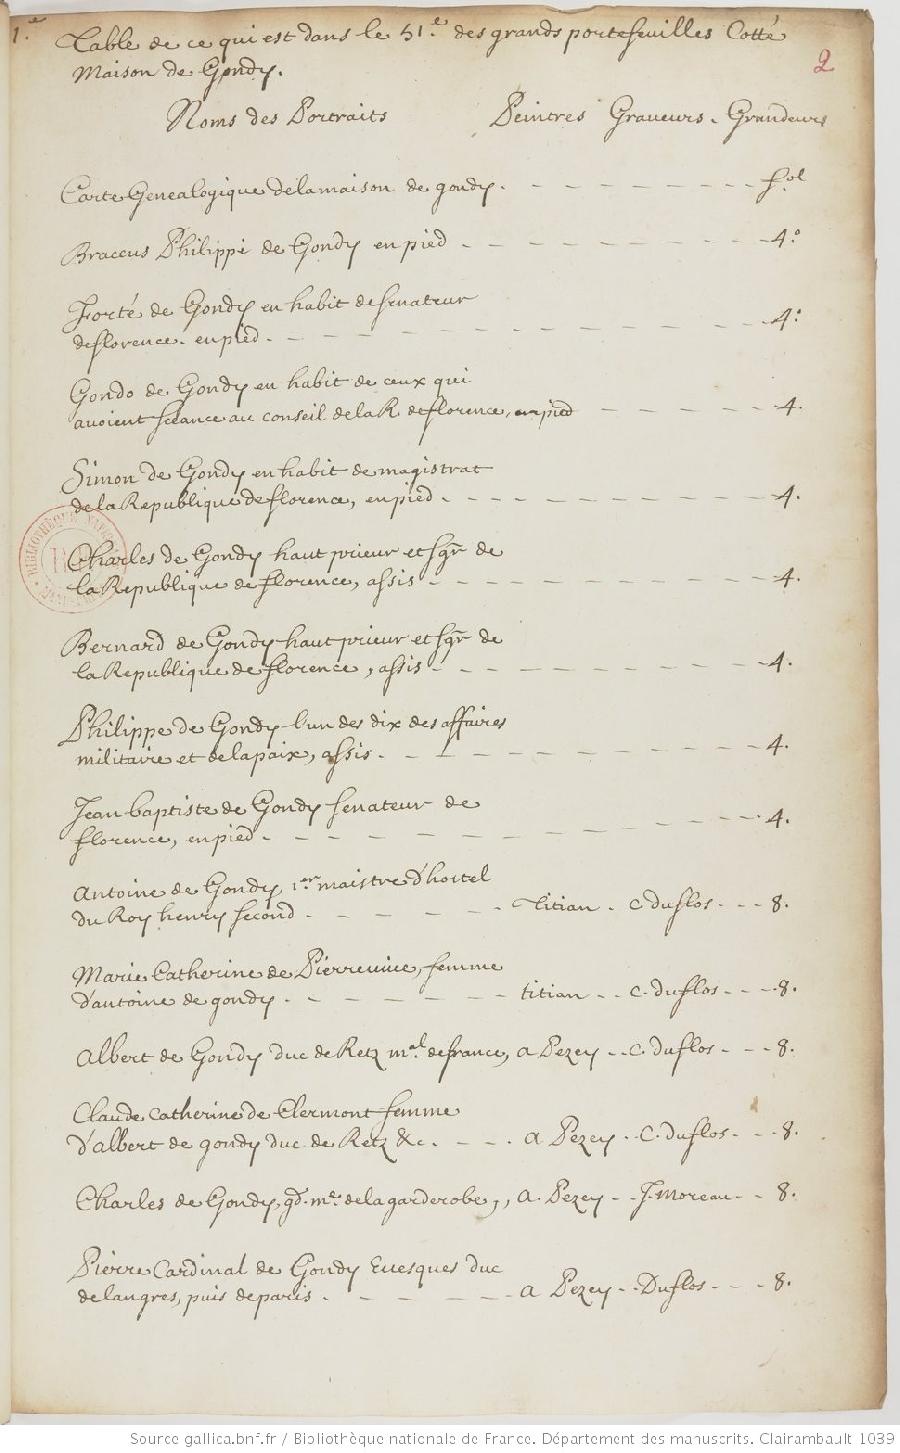 1.e
Table de ce qui est dans le 51.e des grands portefeuilles Cotté
Maison de Gondy.
2
Noms des Portraits Peintres Graveurs - Grandeurs
Carte Genealogique de la maison de gondy. - - - - - - - - fol
Braccus Philippe de Gondy en pied - - - - - - - - 4.o
Forté de Gondy en habit de senateur
de florence. en pied. - - - - - - - - 4.o
Gondo de Gondy en habit de ceux qui
avoient sceance au conseil de la R de florence, en pied - - - - 4.
Simon de Gondy en habit de magistrat
de la Republique de florence, en pied. - - - - - - - - 4.
Charles de Gondy haut prieur et sgr de
la Republique de florence, assis - - - - - - - - 4.
Bernard de Gondy haut prieur et sgr de
la Republique de florence, assis - - - - - - - - 4.
Philippe de Gondy l'un des dix des affaires
militaire et de la paix, assis. - - - - - - - - 4.
Jean baptiste de Gondy senateur de
florence, en pied - - - - - - - - 4.
Antoine de Gondy 1.er maistre d'hostel
du Roy henry second - - - - - - titian - C duflos - - - 8.
Marie Catherine de Pierrevive, femme
d'antoine de gondy. - - - - - - titian - - C. duflos - - - 8.
Albert de Gondy duc de Retz m.al de france, a Pezey - - C. duflos - - - 8.
Claude Catherine de Clermont femme
d'albert de gondy duc de Retz &c. - - - a Pezey - C. duflos - - - 8.
Charles de Gondy, gd. m.e de la garderobe, , a. Pezey - - J. Moreau - - 8.
Pierre Cardinal de Gondy Evesques duc
de langres, puis de paris - - - - - - a Pezey - - Duflos - - - 8.
Source gallica.bnf.fr / Bibliothèque nationale de France. Département des manuscrits. Clairambault 1039